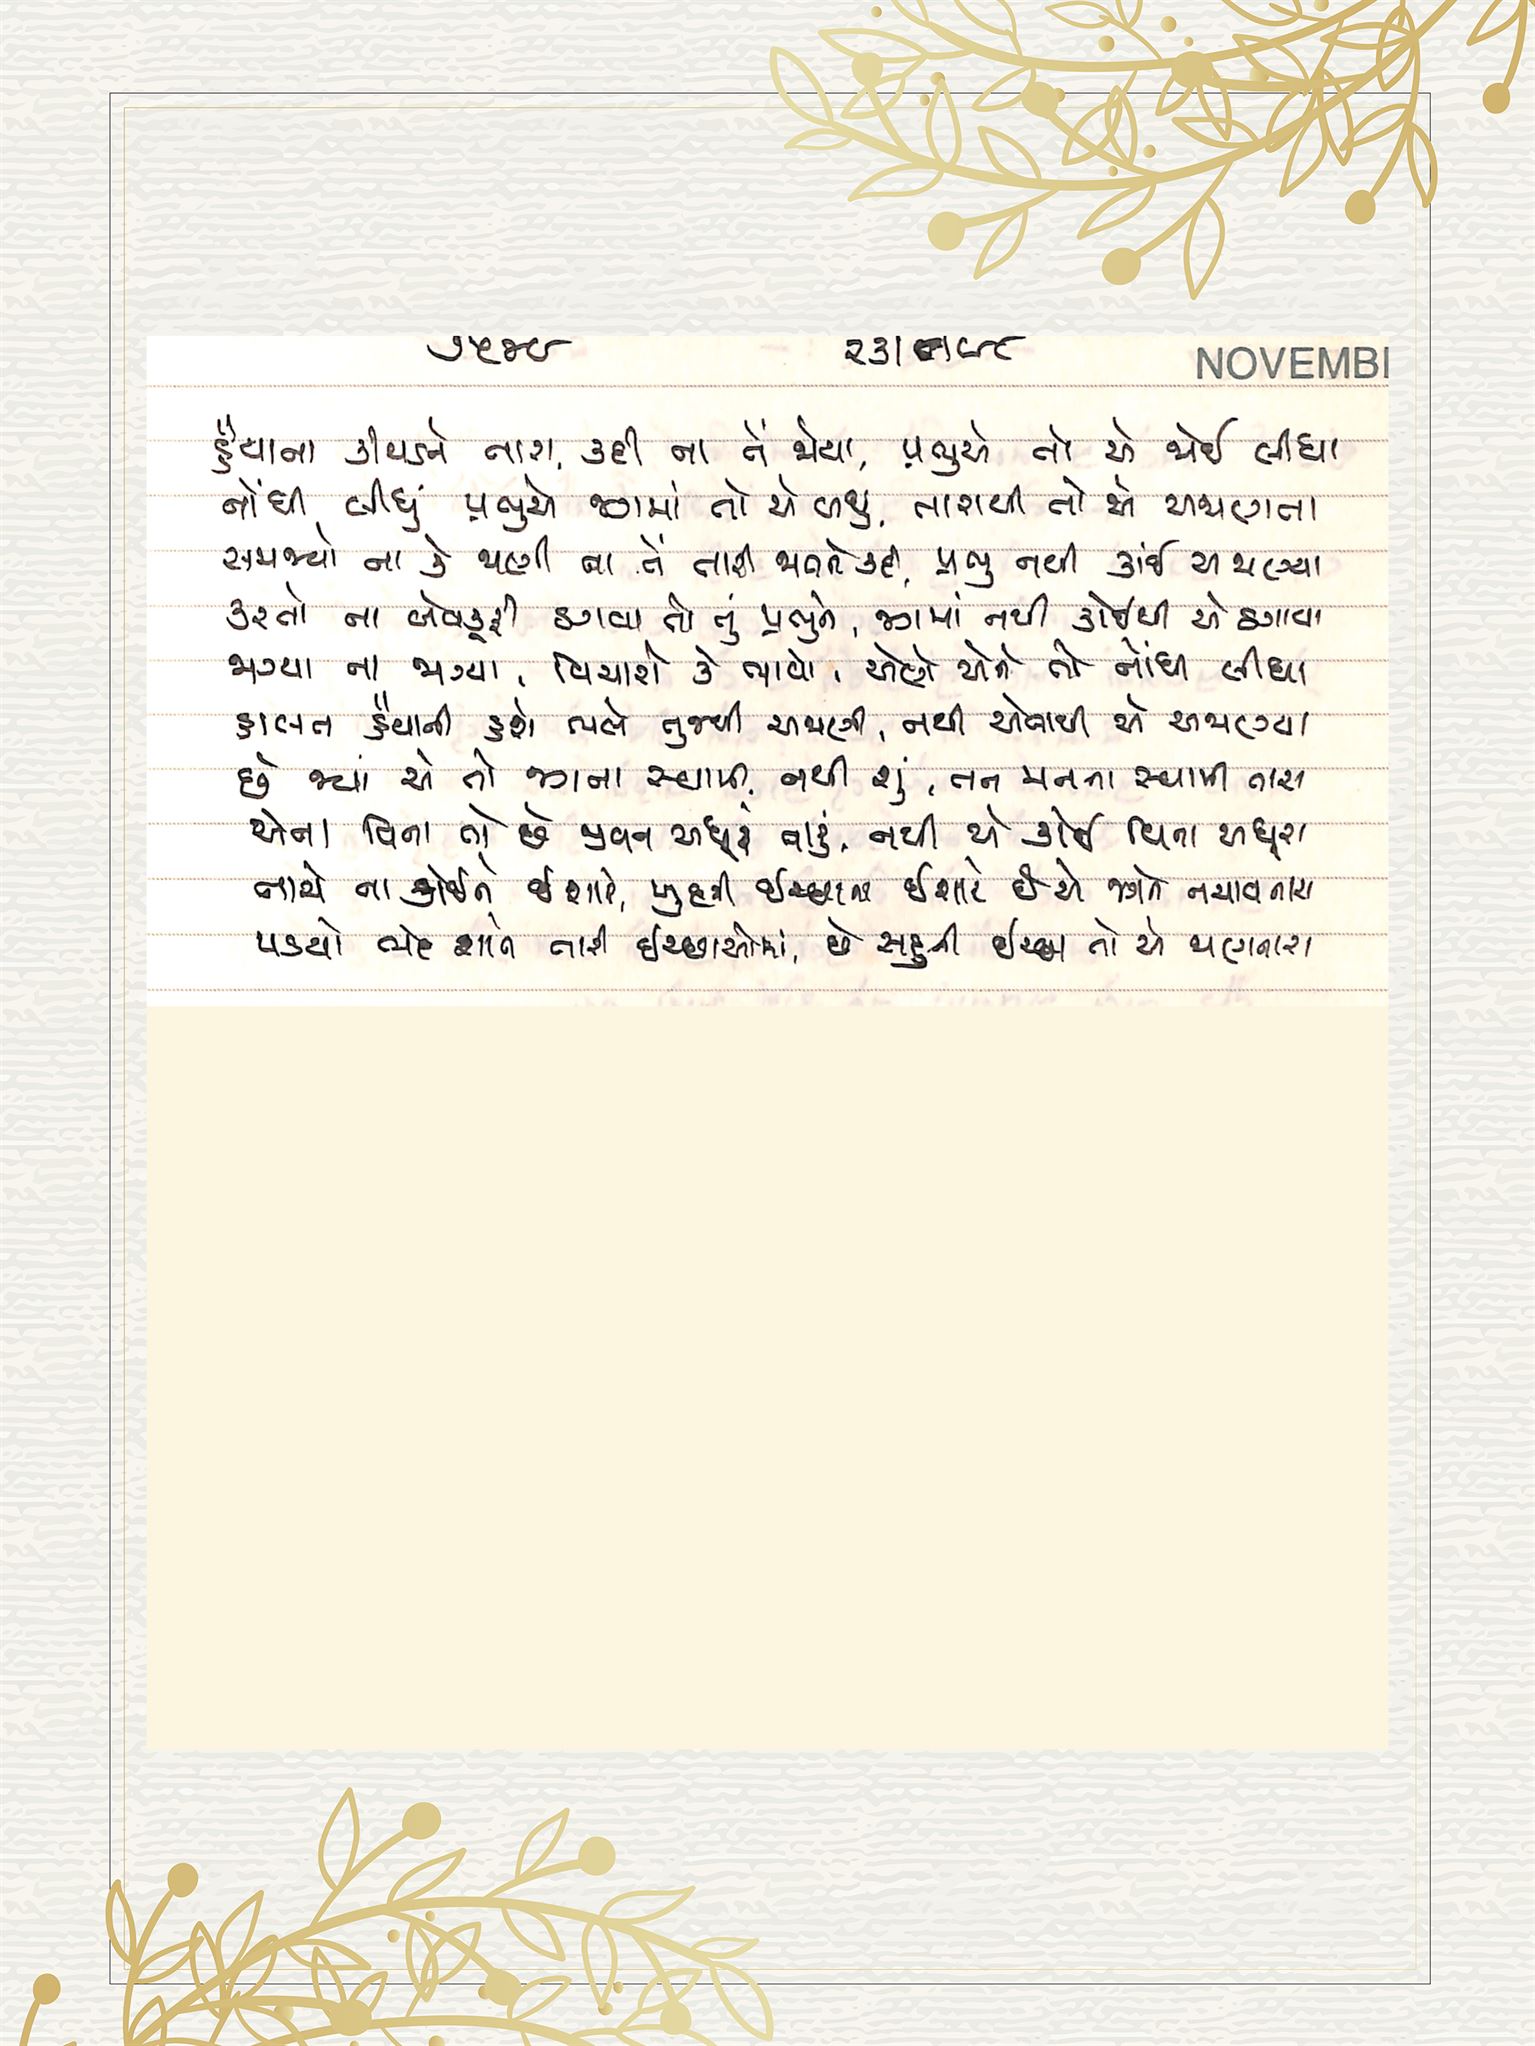 ૭૫૪૯ ૨૩૧ ૯૮ NOVEMBI
હૈયાના કીચડને તારા, કદી ના તેં જોયા, પ્રભુએ તો એ જોઈ લીધા
નોંધી લીધું પ્રભુએ જગમાં તો એ બધું, તારાથી તો એ અજાણતા
સમજ્યો ના કે જાણી ના તેં તારી જાતને કદી, પ્રભુ નથી કાંઈ અજાણ્યા
કરતો ના બેવકૂફી ઠગવા તો તું પ્રભુને, જગમાં નથી કોઈથી એ ઠગાયા
જાગ્યા ના જાગ્યા, વિચારો કે ભાવો, એણે એને તો નોંધી લીધા
હાલત હૈયાની હશે ભલે તુજથી અજાણી, નથી એનાથી એ અજાણ્યા
છે જ્યાં એ તો જગના સ્વામી, નથી શું, તન મનના સ્વામી તારા
એના વિના તો છે જીવન અધૂરું તારું, નથી એ કોઈ વિના અધૂરા
નાચે ના કોઈને ઈશારે, ખુદની ઈચ્છાના ઈશારે છે એ જગને નચાવનારા
પડયો ભેદ શાને તારી ઈચ્છાઓમાં, છે સહુની ઈચ્છા તો એ જાણનારા